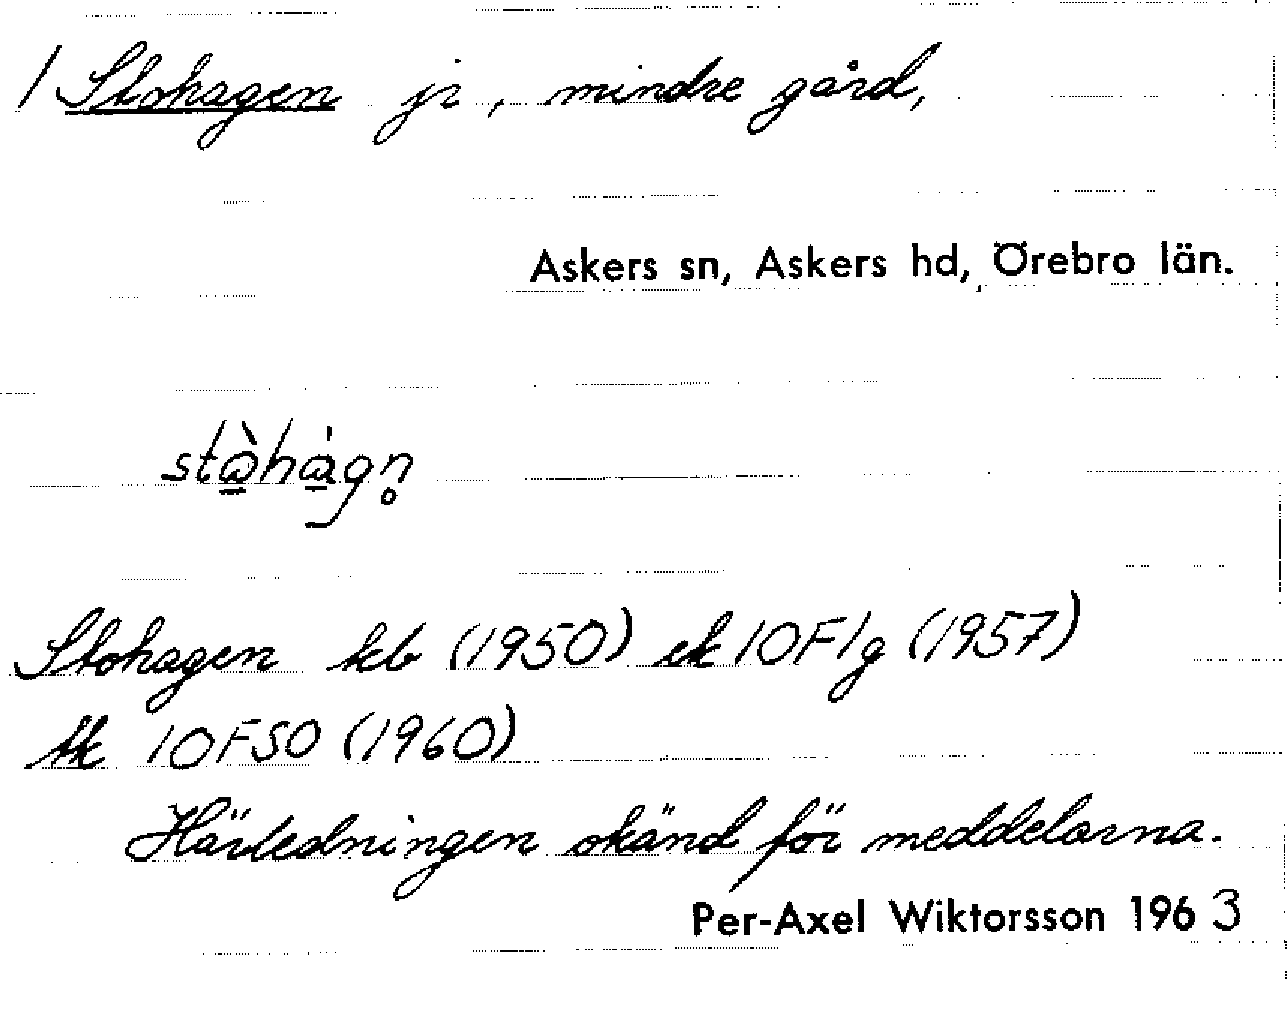 / Stohagen jr, mindre gård,
Askers sn, Askers hd, Örebro län.
Stohagen kb (1950) ek 10F1g (1957)
tk 10FSO (1960)
Härledningen okänd för meddelarna.
Per-Axel Wiktorsson 1963